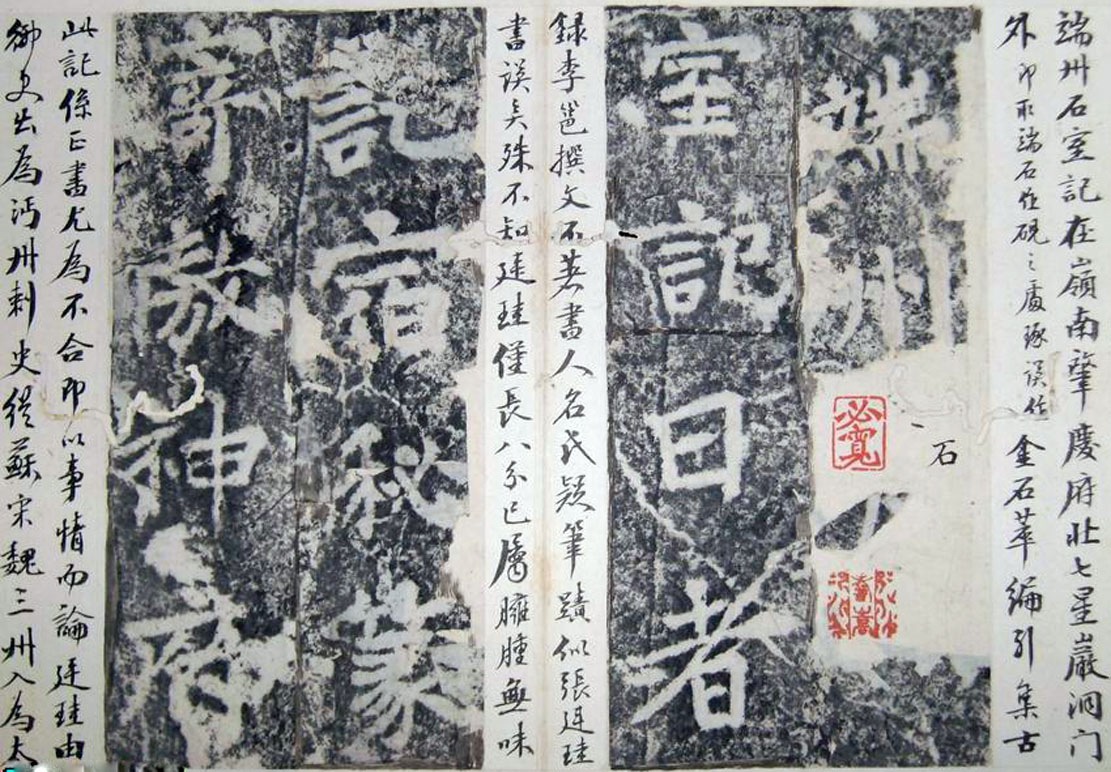 端州石室記在嶺南肇慶府北七星巖洞门
外卽取端石作硯之處琢誤作金石萃編引集古
端州石
必寬
室記目者
錄李邕撰文不著書人名氏疑筆蹟似張廷珪
書誤矣殊不知廷珪僅長八分已屬臃腫無味
記宿秘篆
神
此記係正書尤為不合卽以事情而論廷珪由
御史出為沔州刺史從蘇宋魏三州入為太